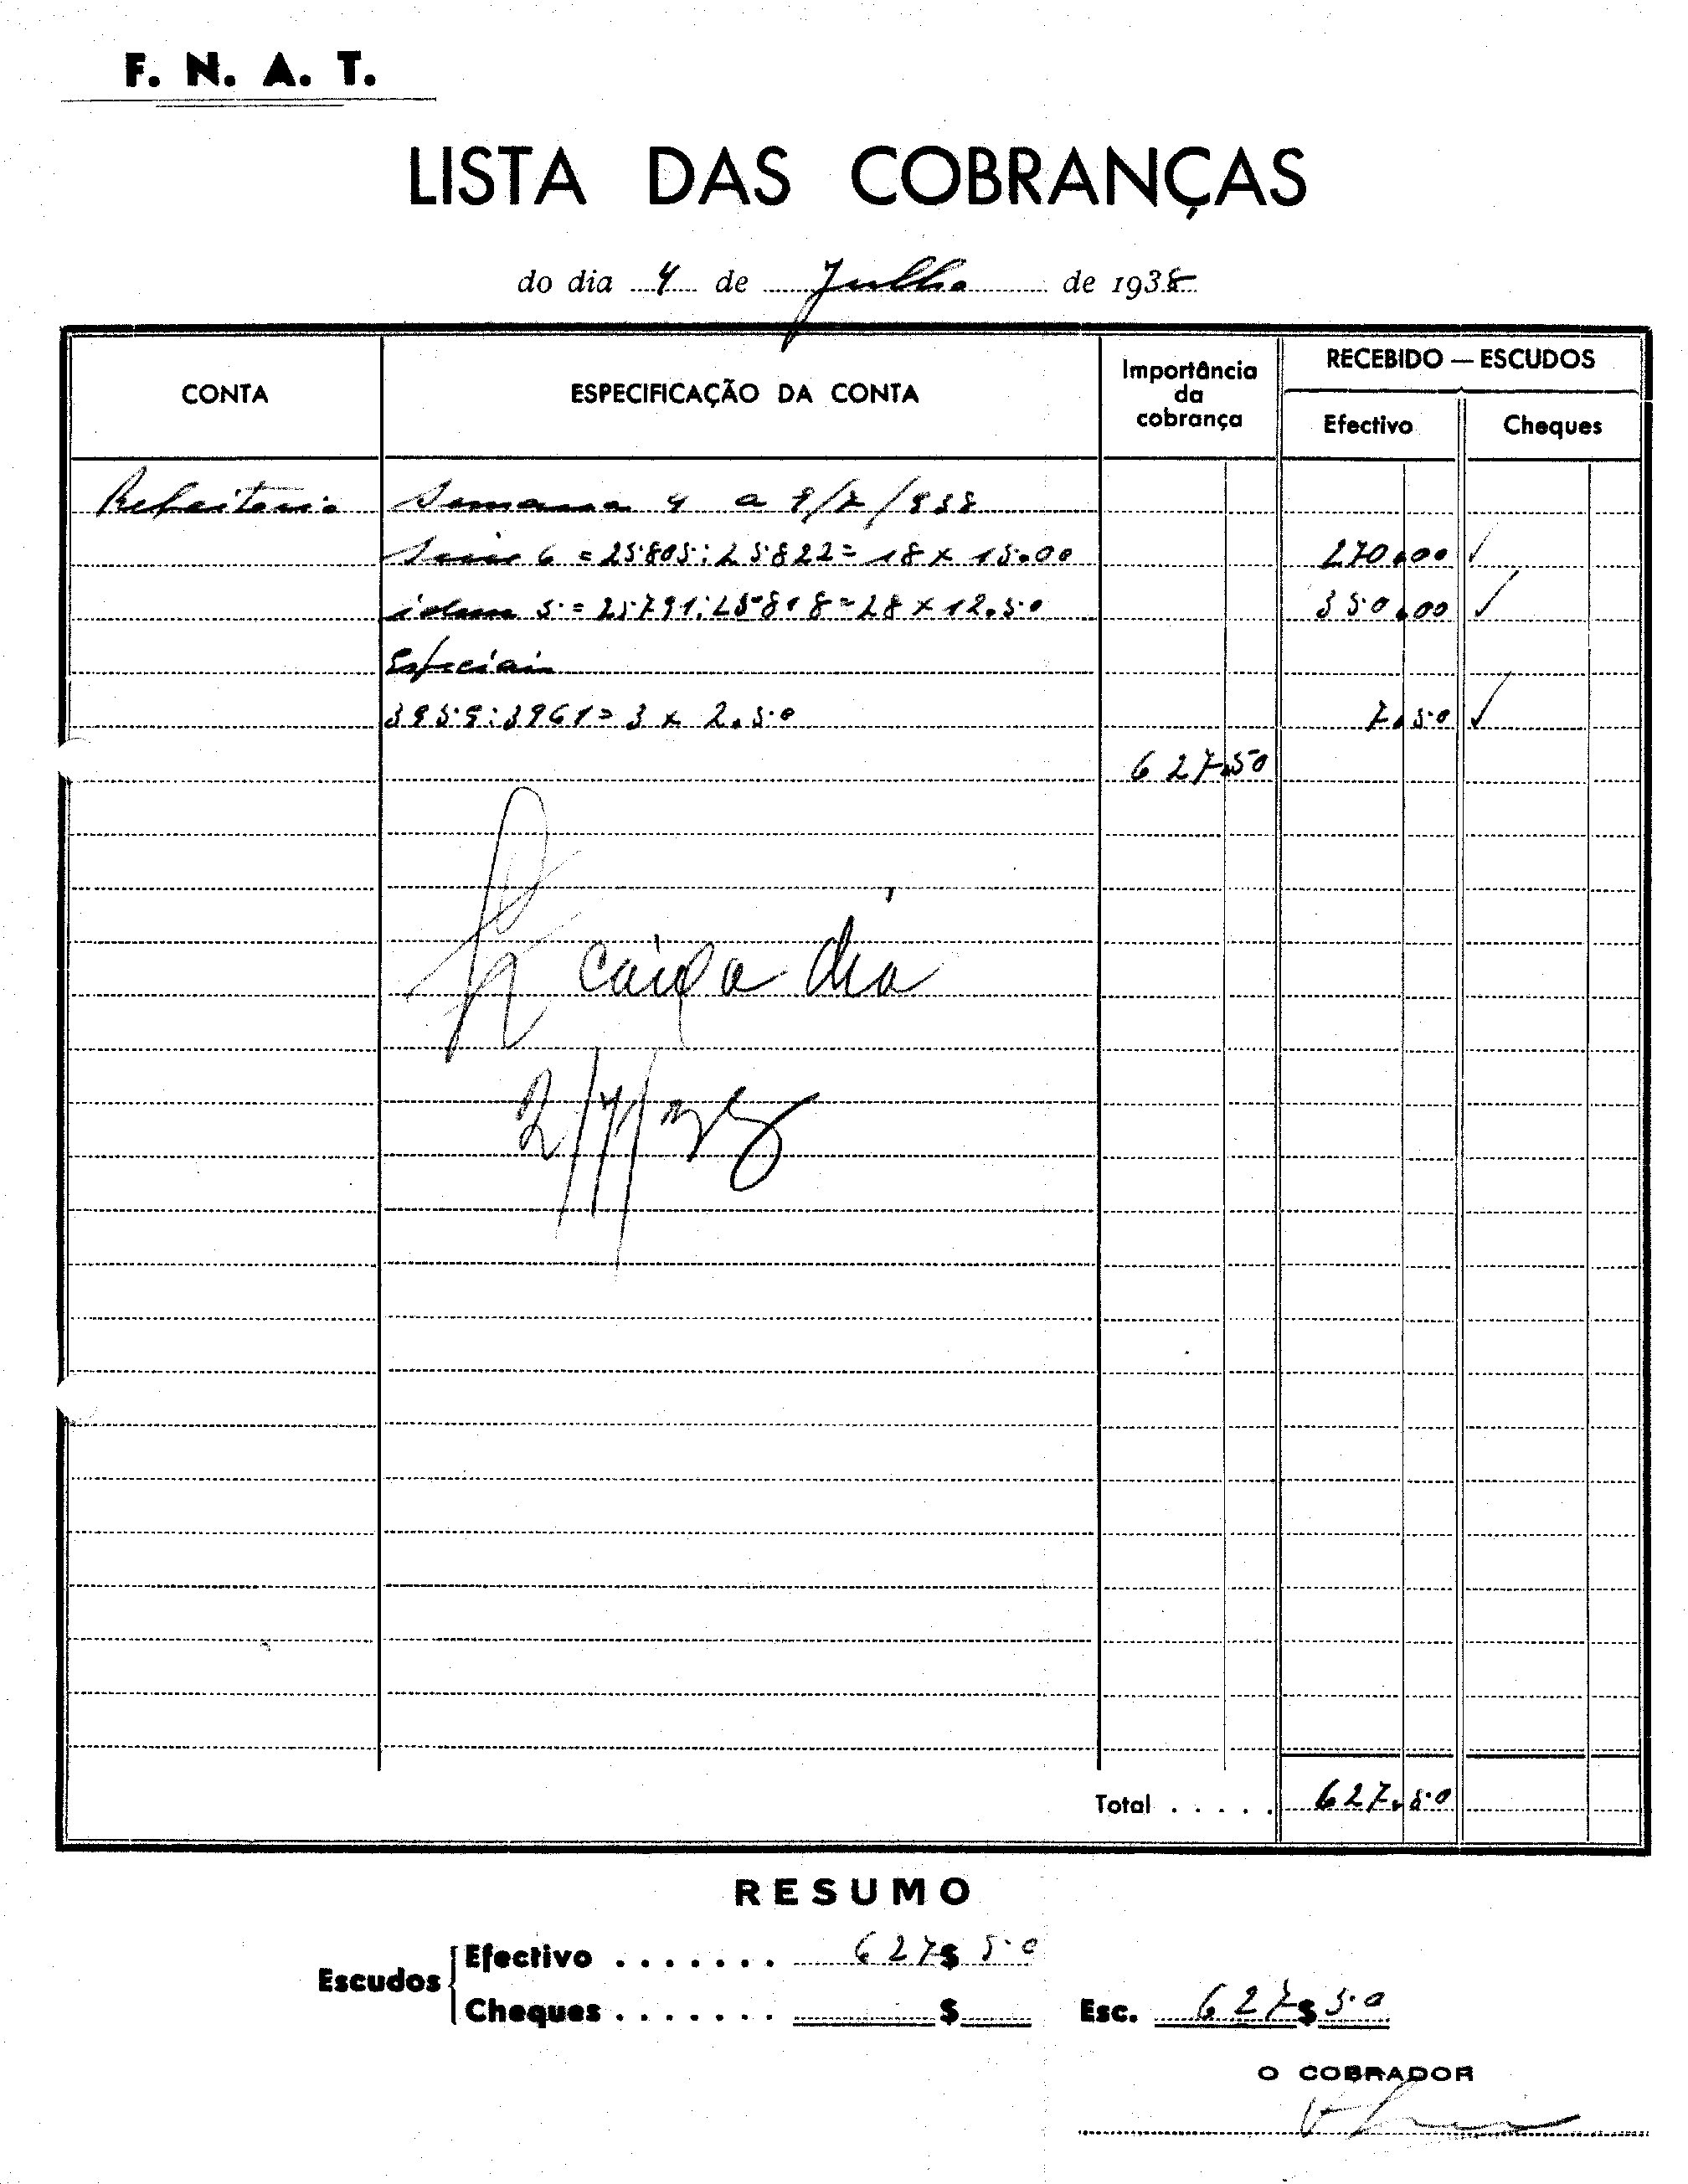 F. N. A. T.
LISTA DAS COBRANÇAS
do dia 4 de Julho de 1938
CONTA
ESPECIFICAÇÃO DA CONTA
Importância da cobrança
RECEBIDO — ESCUDOS
Efectivo
Cheques
Refeitorio Semana 4 a 9/7/938
Serie 6 = 25.805:25.822 = 18 x 15.00 270.00 ✓
idem 5 = 25.791:25.818 = 28 x 12.50 350.00 ✓
Especiais
3959:3961 = 3 x 2.50 7.50 ✓
627.50
caixa dia
2/7/38
Total . . . . . 627.50
RESUMO
Escudos
Efectivo . . . . . . . 627$50
Cheques . . . . . . . $
Esc. 627$50
O COBRADOR